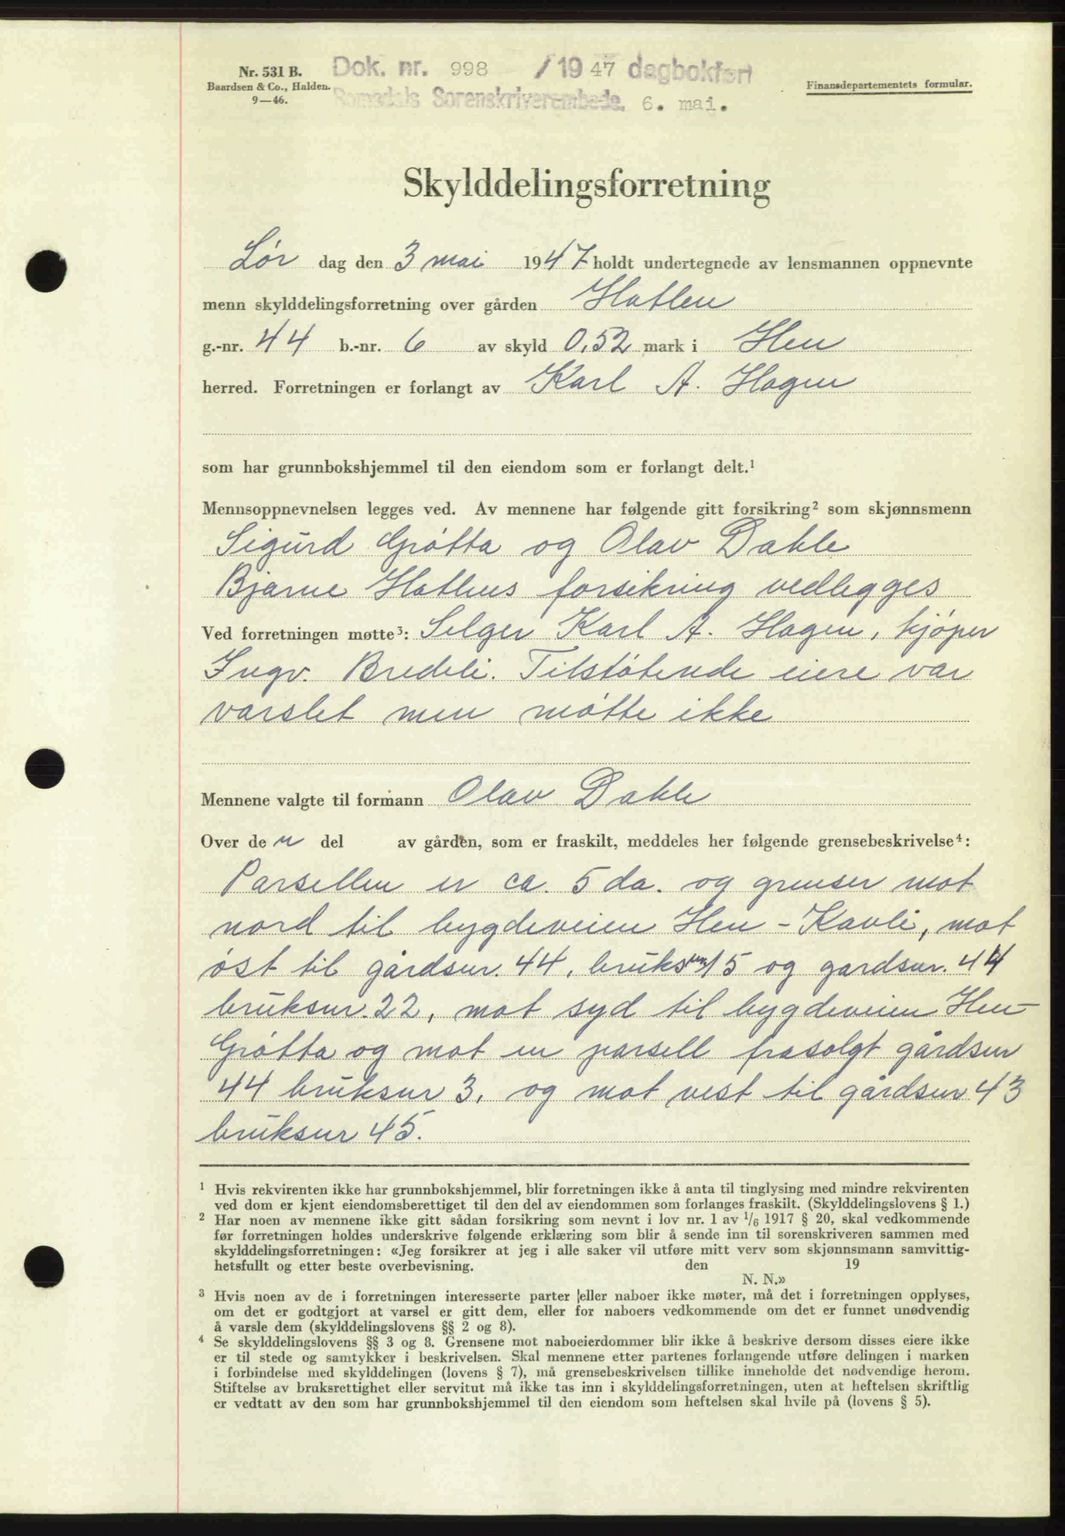 Nr. 531 B.
Baardsen & Co., Halden.
9—46.
Dok. nr. 998 /1947 dagbokført
Romsdals Sorenskriverembede. 6. mai.
Finansdepartementets formular.
Skylddelingsforretning
Lør dag den 3 mai 1947 holdt undertegnede av lensmannen oppnevnte
menn skylddelingsforretning over gården Hatlen
g.-nr. 44 b.-nr. 6 av skyld 0,52 mark i Hen
herred. Forretningen er forlangt av Karl A. Hagen
som har grunnbokshjemmel til den eiendom som er forlangt delt.¹
Mennsoppnevnelsen legges ved. Av mennene har følgende gitt forsikring² som skjønnsmenn
Sigurd Grótta og Olav Dahle
Bjarne Hatlens forsikring vedlegges
Ved forretningen møtte³: Selger Karl A. Hagen, kjóper
Ingv. Bredeli. Tilstótende eiere var
varslet men mótte ikke
Mennene valgte til formann Olav Dahle
Over den del av gården, som er fraskilt, meddeles her følgende grensebeskrivelse⁴:
Parsellen er ca. 5 da. og grenser mot
nord til bygdeveien Hen - Kavli, mot
óst til gårdsnr. 44, bruksnr 15 og gardsnr. 44
bruksnr. 22, mot syd til bygdeveien Hen-
Grótta og mot en parsell frasolgt gårdsnr
44 bruksnr 3. og mot vest til gårdsnr 43
bruksnr 45.
¹ Hvis rekvirenten ikke har grunnbokshjemmel, blir forretningen ikke å anta til tinglysing med mindre rekvirenten
ved dom er kjent eiendomsberettiget til den del av eiendommen som forlanges fraskilt. (Skylddelingslovens § 1.)
² Har noen av mennene ikke gitt sådan forsikring som nevnt i lov nr. 1 av 1/6 1917 § 20, skal vedkommende
før forretningen holdes underskrive følgende erklæring som blir å sende inn til sorenskriveren sammen med
skylddelingsforretningen: «Jeg forsikrer at jeg i alle saker vil utføre mitt verv som skjønnsmann samvittig-
hetsfullt og etter beste overbevisning. den 19
N. N.»
³ Hvis noen av de i forretningen interesserte parter eller naboer ikke møter, må det i forretningen opplyses,
om det er godtgjort at varsel er gitt dem, eller for naboers vedkommende om det er funnet unødvendig
å varsle dem (skylddelingslovens §§ 2 og 8).
⁴ Se skylddelingslovens §§ 3 og 8. Grensene mot naboeierdommer blir ikke å beskrive dersom disses eiere ikke
er til stede og samtykker i beskrivelsen. Skal mennene etter partenes forlangende utføre delingen i marken
i forbindelse med skylddelingen (lovens § 7), må grensebeskrivelsen tillike inneholde det nødvendige herom.
Stiftelse av bruksrettighet eller servitut må ikke tas inn i skylddelingsforretningen, uten at heftelsen skriftlig
er vedtatt av den som har grunnbokshjemmel til den eiendom som heftelsen skal hvile på (lovens § 5).